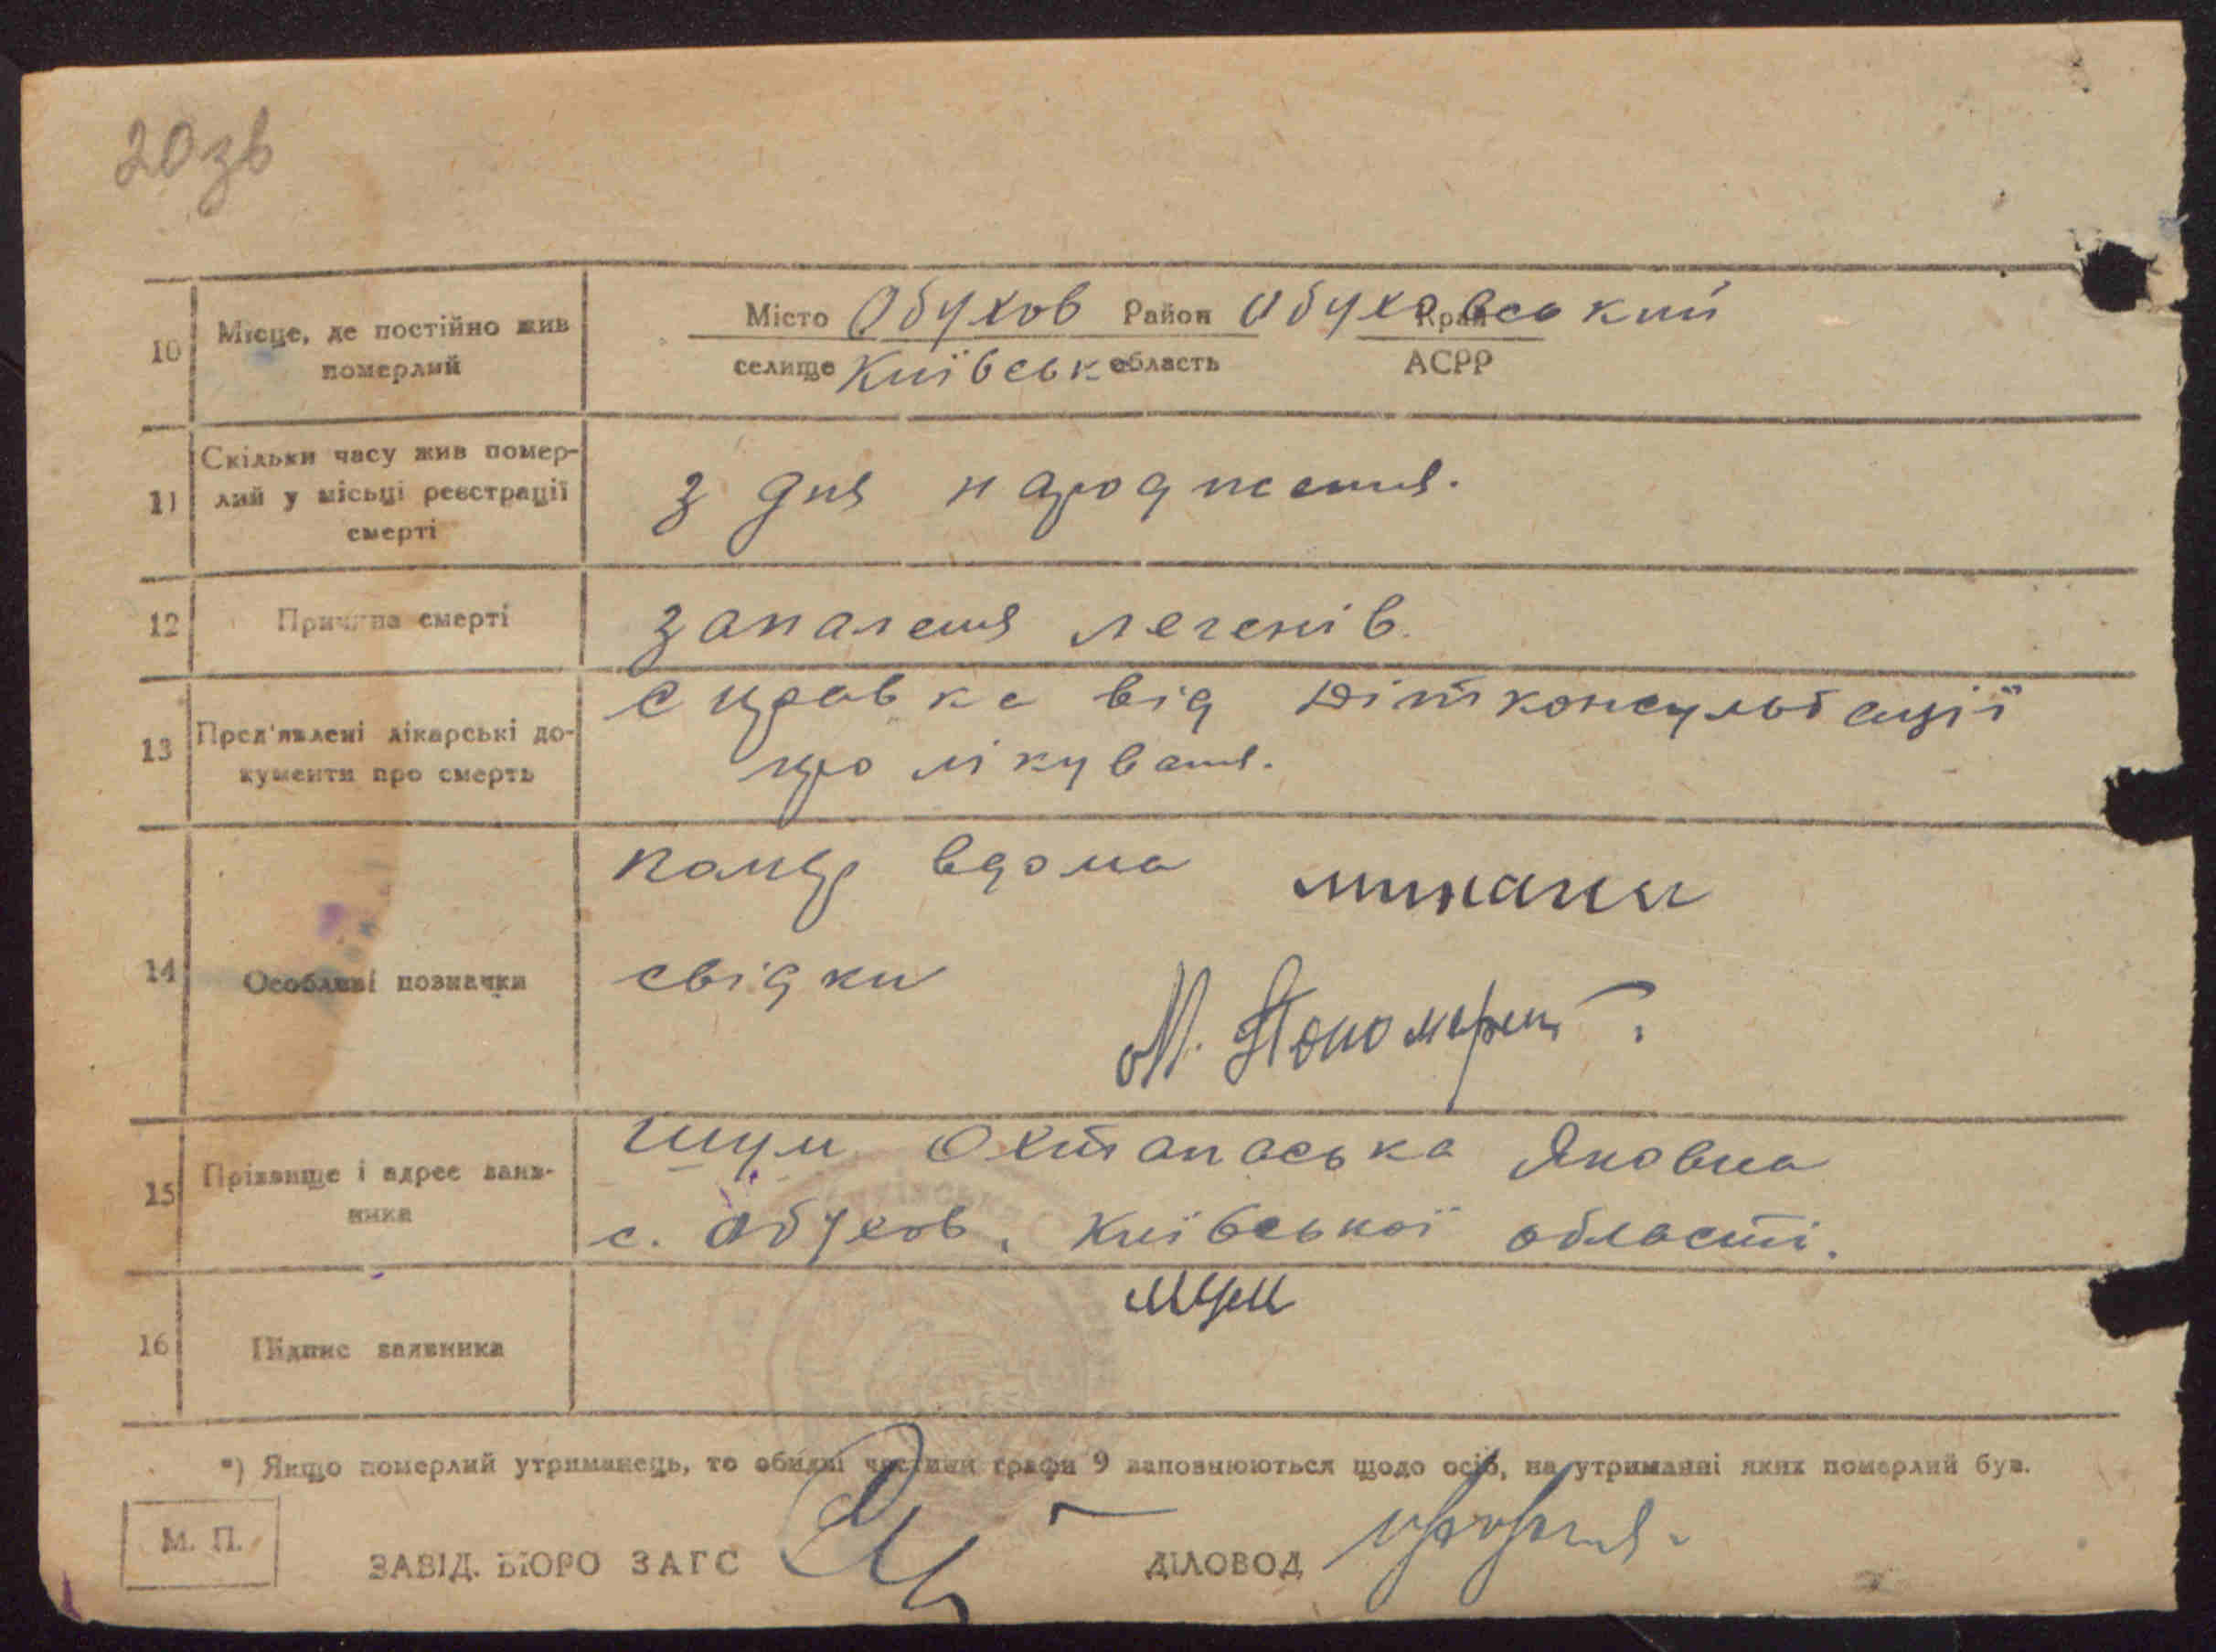 20зв
10 Місце, де постійно жив померлий
Місто Обухов Район Обуховський Край
селище Київськ область АСРР
11 Скільки часу жив померлий у місьці реєстрації смерті
з дня народження.
12 Причина смерті
запаления легенів.
13 Пред'явлені лікарські документи про смерть
Справка від Дітконсультації
про лікування.
14 Особливі позначки
помер вдома
свідки
М. Пономарен
15 Прізвище і адрес заявника
Шум Яковна
с. Обухов, Київської області.
16 Підпис заявника
Шум
*) Якщо померлий утриманець, то обидві частини графи 9 заповнюються щодо осіб, на утриманні яких померлий був.
М. П.
ЗАВІД. БЮРО ЗАГС
ДІЛОВОД